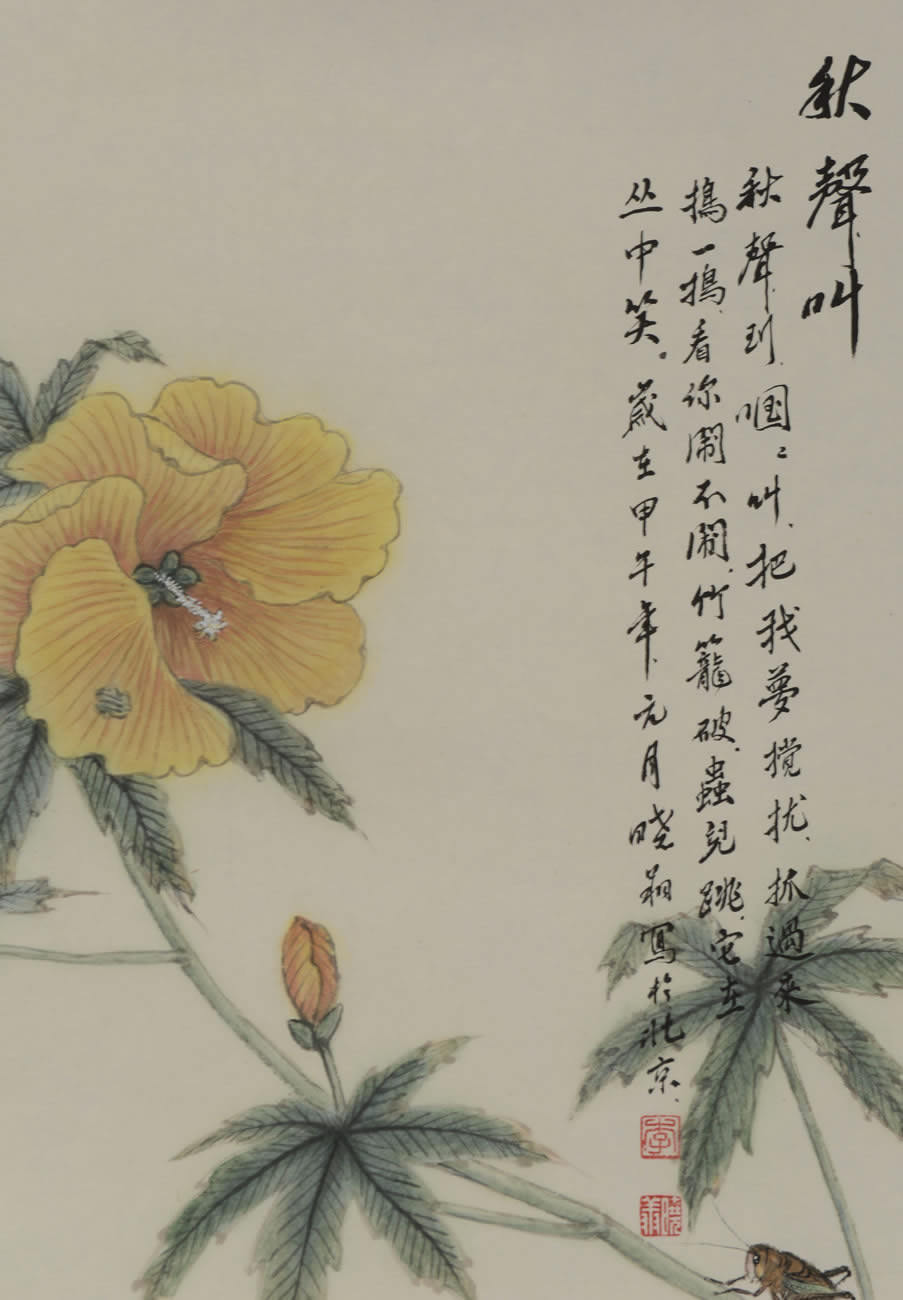 秋聲叫
秋聲到，啯々叫，把我夢搅扰，抓過來
搗一搗，看你鬧不鬧，竹籠破，蟲兒跳，它在
丛中笑。歲在甲午年，元月晓寫於北京，
李